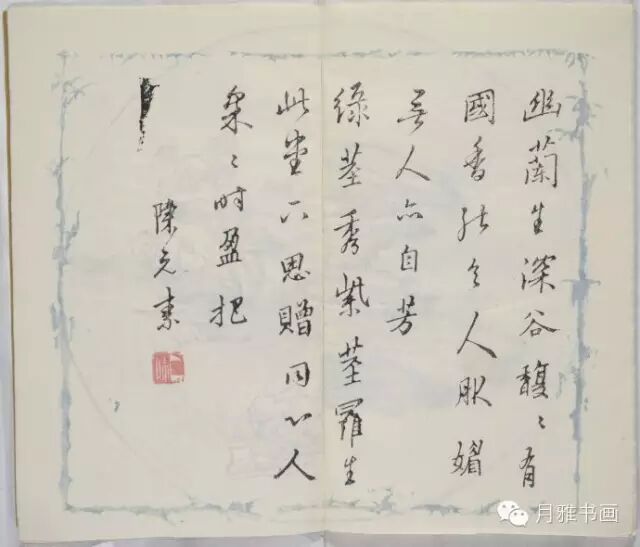 幽蘭生深谷馥〻有
國香能令人服媚
無人亦自芳
綠莖秀紫莖羅生
此堂下思贈同心人
采〻時盈把
陳元素
月雅书画